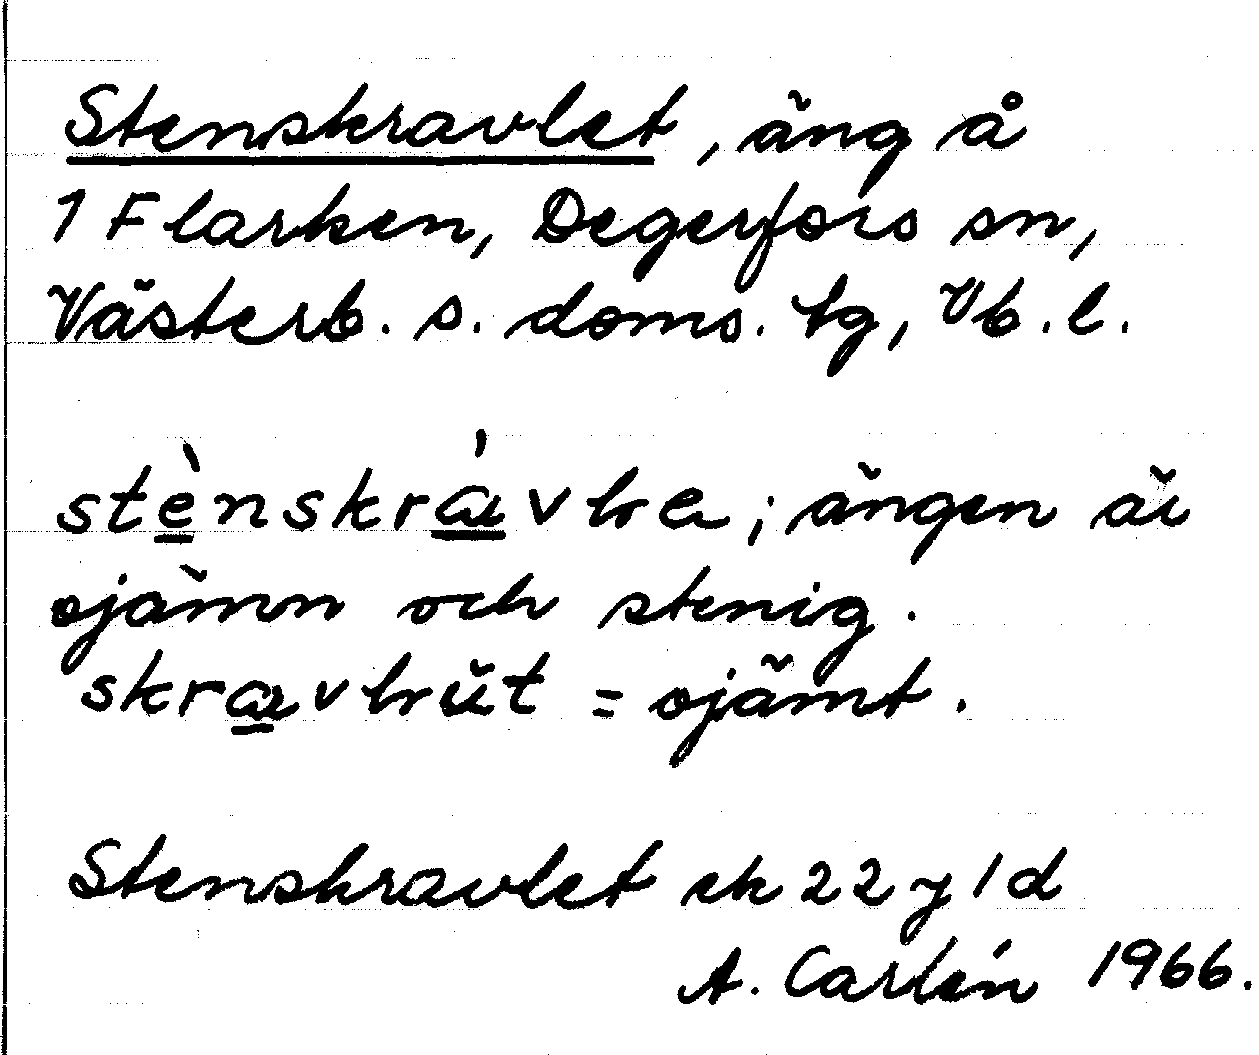 Stenskravlet, äng å
1 Flarken, Degerfors sn,
Västerb. s. doms. tg, Vb.l.
stènskrávlre; ängen är
ojämn och stenig.
skravlrŭt = ojämt.
Stenskravlet ek 22 y 1 d
A. Carlén 1966.